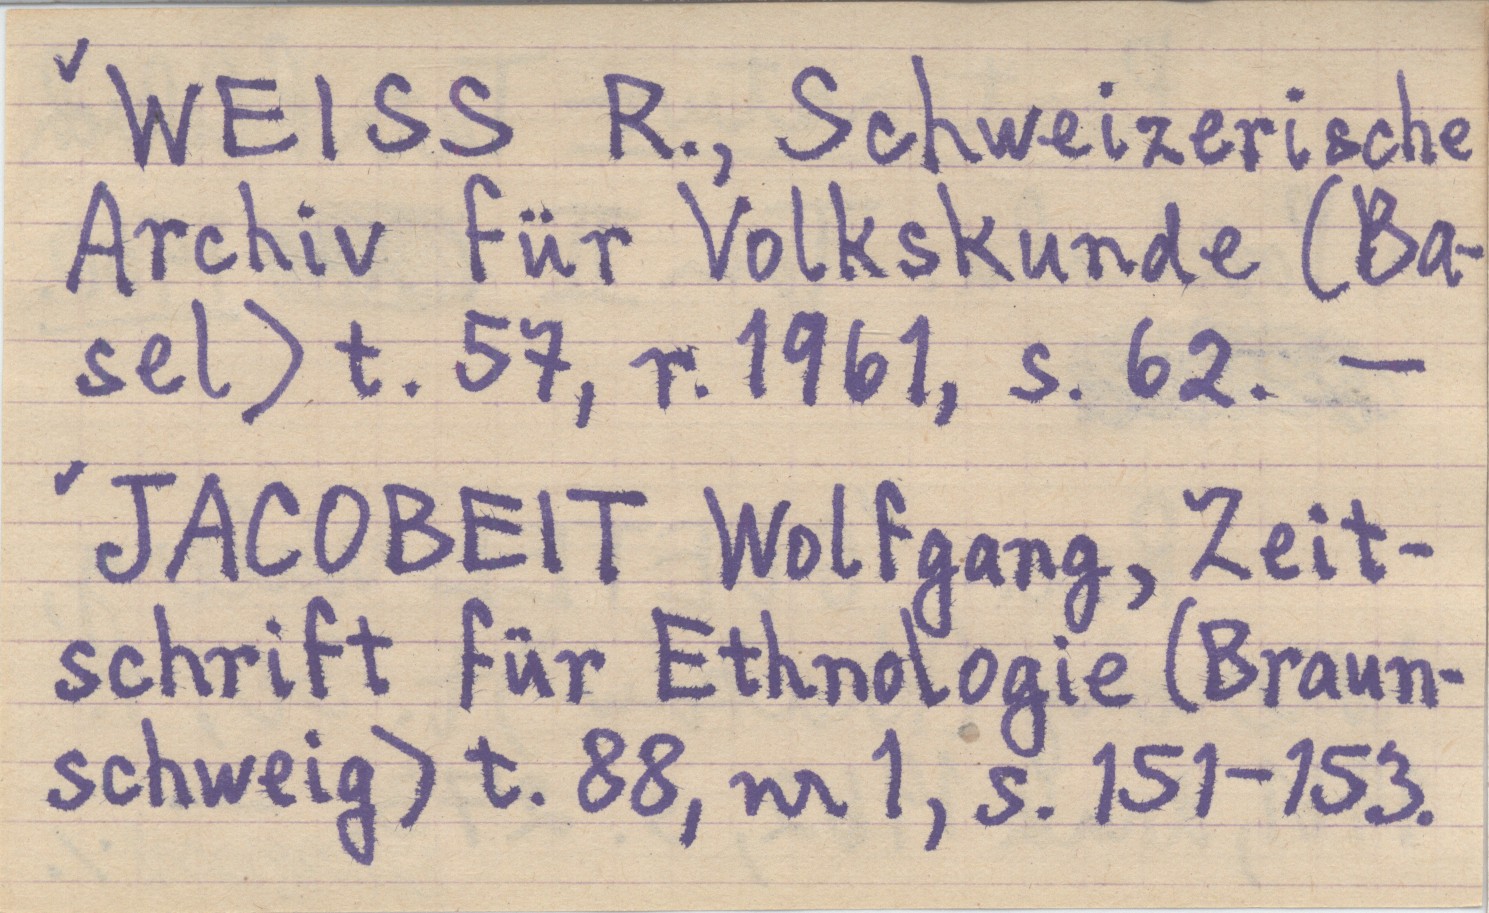 ✓ WEISS R., Schweizerische
Archiv für Volkskunde (Ba-
sel) t. 57, r. 1961, s. 62. —
✓ JACOBEIT Wolfgang, Zeit-
schrift für Ethnologie (Braun-
schweig) t. 88, nr 1, s. 151-153.